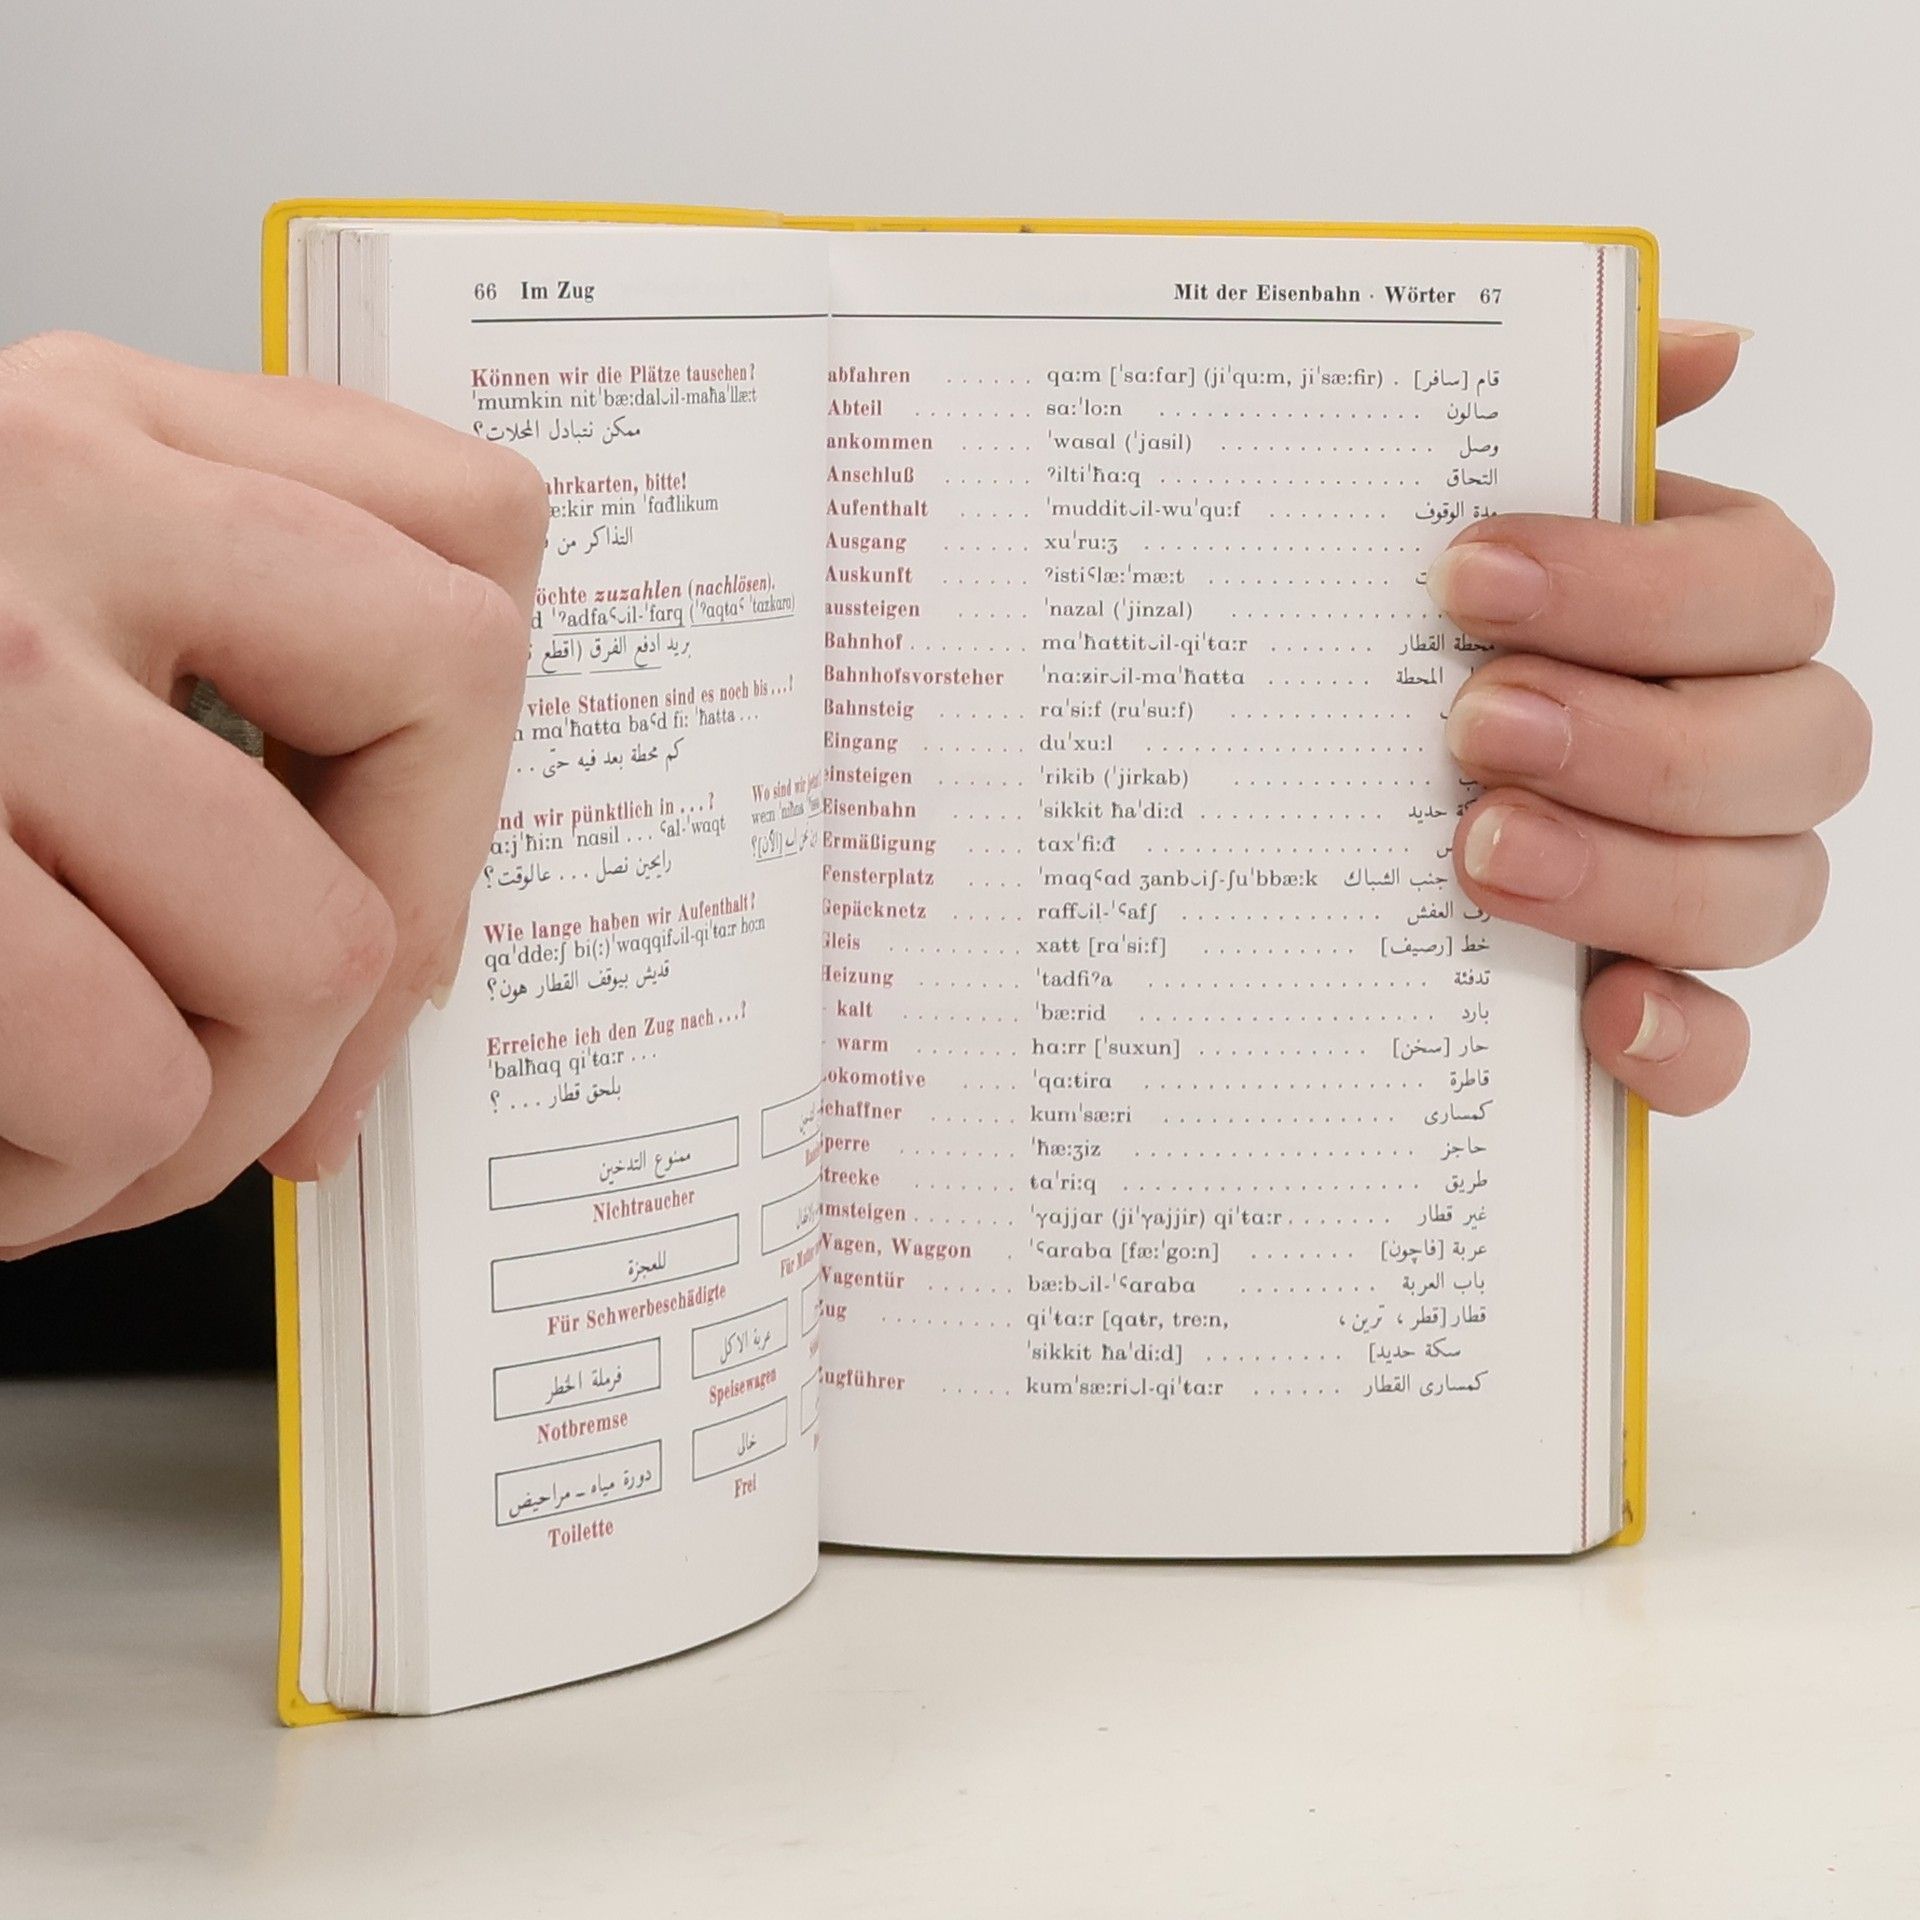 66 Im Zug
Können wir die Plätze tauschen?
ˈmumkin nitˈbæ:dal‿il-maħaˈllæ:t
ممكن نتبادل المحلات؟
ahrkarten, bitte!
æ:kir min ˈfađlikum
التذاكر من
öchte zuzahlen (nachlösen).
d ˈˀadfaˤ‿il-ˈfarq (ˈˀaqtaˤ ˈtazkara)
بريد ادفع الفرق (اقطع
viele Stationen sind es noch bis ...?
maˈħatta baˤd fi: ˈħatta ...
كم محطة بعد فيه حتّى ..
nd wir pünktlich in ...?
a:jˈħi:n ˈnasil ... ˤal-ˈwaqt
رايحين نصل ... عالوقت؟
Wo sind wir
Wie lange haben wir Aufenthalt?
qaˈdde:ʃ bi(:)ˈwaqqif‿il-qiˈta:r ho:n
قديش بيوقف القطار هون؟
Erreiche ich den Zug nach ...?
ˈbalħaq qiˈta:r ...
بلحق قطار ... ؟
ممنوع التدخين
Nichtraucher
للعجزة
Für Schwerbeschädigte
فرملة الخطر
Notbremse
عربة الاكل
Speisewagen
دورة مياه – مراحيض
Toilette
خالى
Frei
Mit der Eisenbahn · Wörter 67
abfahren ...... qa:m [ˈsa:far] (jiˈqu:m, jiˈsæ:fir) . قام [سافر]
Abteil ........ sa:ˈlo:n .................. صالون
ankommen ..... ˈwasal (ˈjasil) .............. وصل
Anschluß ...... ˀiltiˈħa:q .................. التحاق
Aufenthalt ..... ˈmuddit‿il-wuˈqu:f ........ مدة الوقوف
Ausgang ...... xuˈru:ʒ ..................
Auskunft ...... ˀistiˤlæ:ˈmæ:t ............
aussteigen ...... ˈnazal (ˈjinzal) .............
Bahnhof........ maˈħattit‿il-qiˈta:r ....... محطة القطار
Bahnhofsvorsteher ˈna:zir‿il-maˈħatta ....... المحطة
Bahnsteig ...... raˈsi:f (ruˈsu:f) ............
Eingang ....... duˈxu:l .................
einsteigen ...... ˈrikib (ˈjirkab) .............
Eisenbahn ...... ˈsikkit ħaˈdi:d ............ حديد
Ermäßigung .... taxˈfi:đ .................
Fensterplatz .... ˈmaqˤad ʒanb‿iʃ-ʃuˈbbæ:k جنب الشباك
Gepäcknetz ..... raff‿il-ˈˤafʃ ............. رف العفش
Gleis ........ xatt [raˈsi:f] .......... خط [رصيف]
Heizung ....... ˈtadfiˀa .................. تدفئة
kalt ........ ˈbæ:rid .................... بارد
warm ....... ha:rr [ˈsuxun] ........... حار [سخن]
Lokomotive .... ˈqa:tira .................. قاطرة
Schaffner ...... kumˈsæ:ri ................ كمسارى
Sperre ........ ˈħæ:ʒiz .................. حاجز
Strecke ....... taˈri:q .................. طريق
umsteigen....... ˈγajjar (jiˈγajjir) qiˈta:r....... غير قطار
Wagen, Waggon . ˈˤaraba [fæ:ˈgo:n] ....... عربة [فاچون]
Wagentür ...... bæ:b‿il-ˈˤaraba ......... باب العربة
Zug ......... qiˈta:r [qatr, tre:n, قطار[قطر ، ترين ،
ˈsikkit ħaˈdi:d] ......... سكة حديد]
Zugführer ..... kumˈsæ:ri‿l-qiˈta:r ...... كمسارى القطار